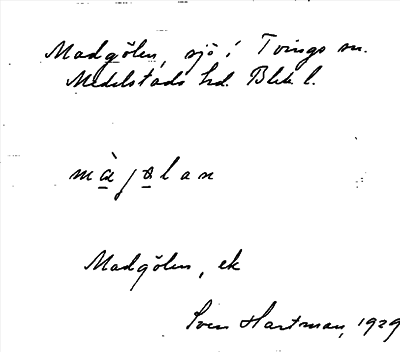 Madgölen, sjö i Tvings sn.
Medelstads hd. Blek. l.
màjølan
Madgölen, ek
Sven Hartman, 1929